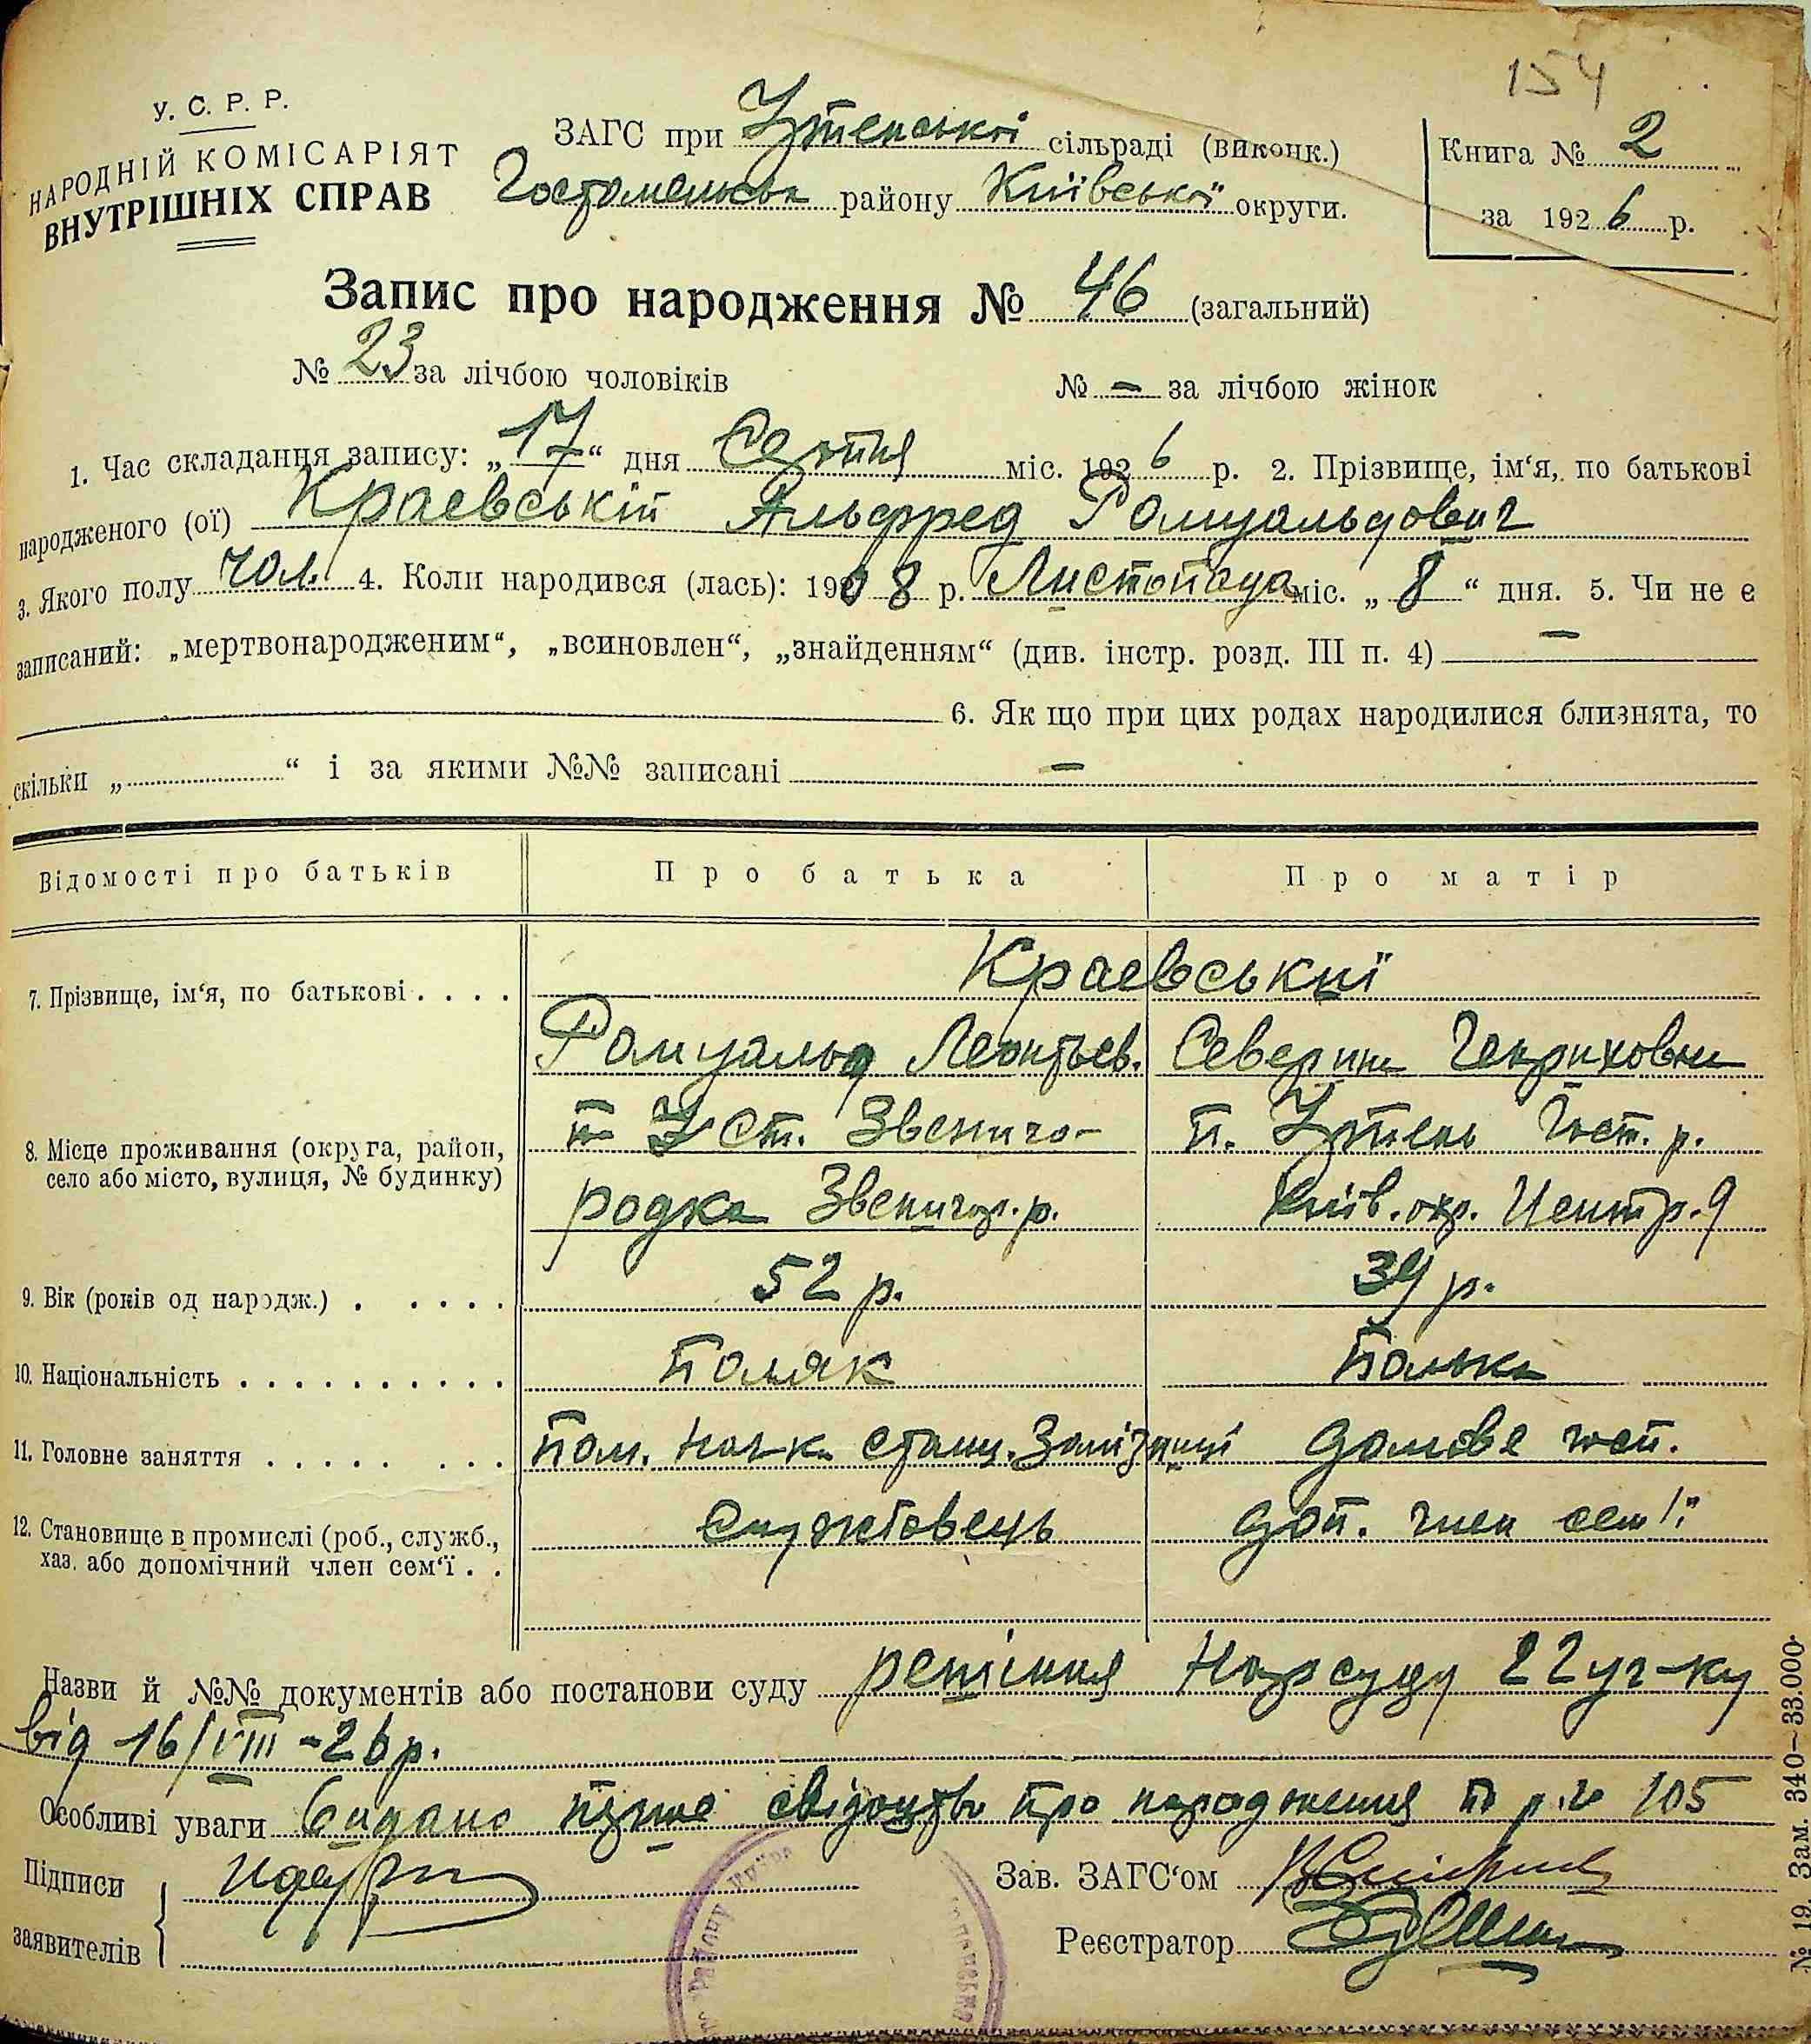 154
У. С. Р. Р.
НАРОДНІЙ КОМІСАРІЯТ
ВНУТРІШНІХ СПРАВ
ЗАГС при Ірпенській сільраді (виконк.)
Гостомельськ району Київської округи.
Книга № 2
за 1926 р.
Запис про народження № 46 (загальний)
№ 23 за лічбою чоловіків № — за лічбою жінок
1. Час складання запису: „17“ дня Серпня міс. 1926 р. 2. Прізвище, ім‘я, по батькові
народженого (ої) Краевській Альфред Ромуальдович
3. Якого полу чол. 4. Коли народився (лась): 1908 р. Листопада міс. „8“ дня. 5. Чи не є
записаний: „мертвонародженим“, „всиновлен“, „знайденням“ (див. інстр. розд. III п. 4) —
6. Як що при цих родах народилися близнята, то
скільки „ “ і за якими №№ записані —
Відомості про батьків Про батька Про матір
7. Прізвище, ім‘я, по батькові . . . . Краевські
Ромуальд Леонтьев. Северина Генриховна
8. Місце проживання (округа, район, село або місто, вулиця, № будинку) ст. Звениго-
родка Звенигор. р.
п. Ірпень Гост. р.
Київ. окр. Центр. 9
9. Вік (років од народж.) . . . . . 52 р. 39 р.
10. Національність . . . . . . . . . . Поляк Полька
11. Головне заняття . . . . . . . . Пом. нач-ка станц. Залізниці домове госп.
12. Становище в промислі (роб., служб., хаз. або допомічний член сем‘ї . . Службовець доп. член сем'ї
Назви й №№ документів або постанови суду решіння Нарсуду 22 уч-ку
від 16/VIII-26 р.
Особливі уваги Видано перше свідоцтво про народження по р. № 105
Підписи
заявителів
Зав. ЗАГС‘ом
Реєстратор
№ 19. Зам. 340—33.000.
району